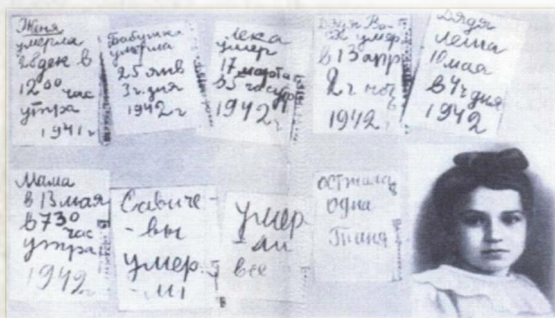 Женя
умерла
28 дек в
12 00 час
утра
1941 г
Бабушка
умерла
25 янв
3 ч. дня
1942 г
Лека
умер
17 марта
в 5 час утр
1942 г
Дядя Ва-
ся умер
в 13 апр
2 ч ноч
1942
Дядя
Леша
10 мая
в 4 ч дня
1942
Мама
в 13 мая
в 7 30
час
утра
1942
Савиче-
-вы
умер-
-ли
умер
-ли
все
осталась
одна
Таня